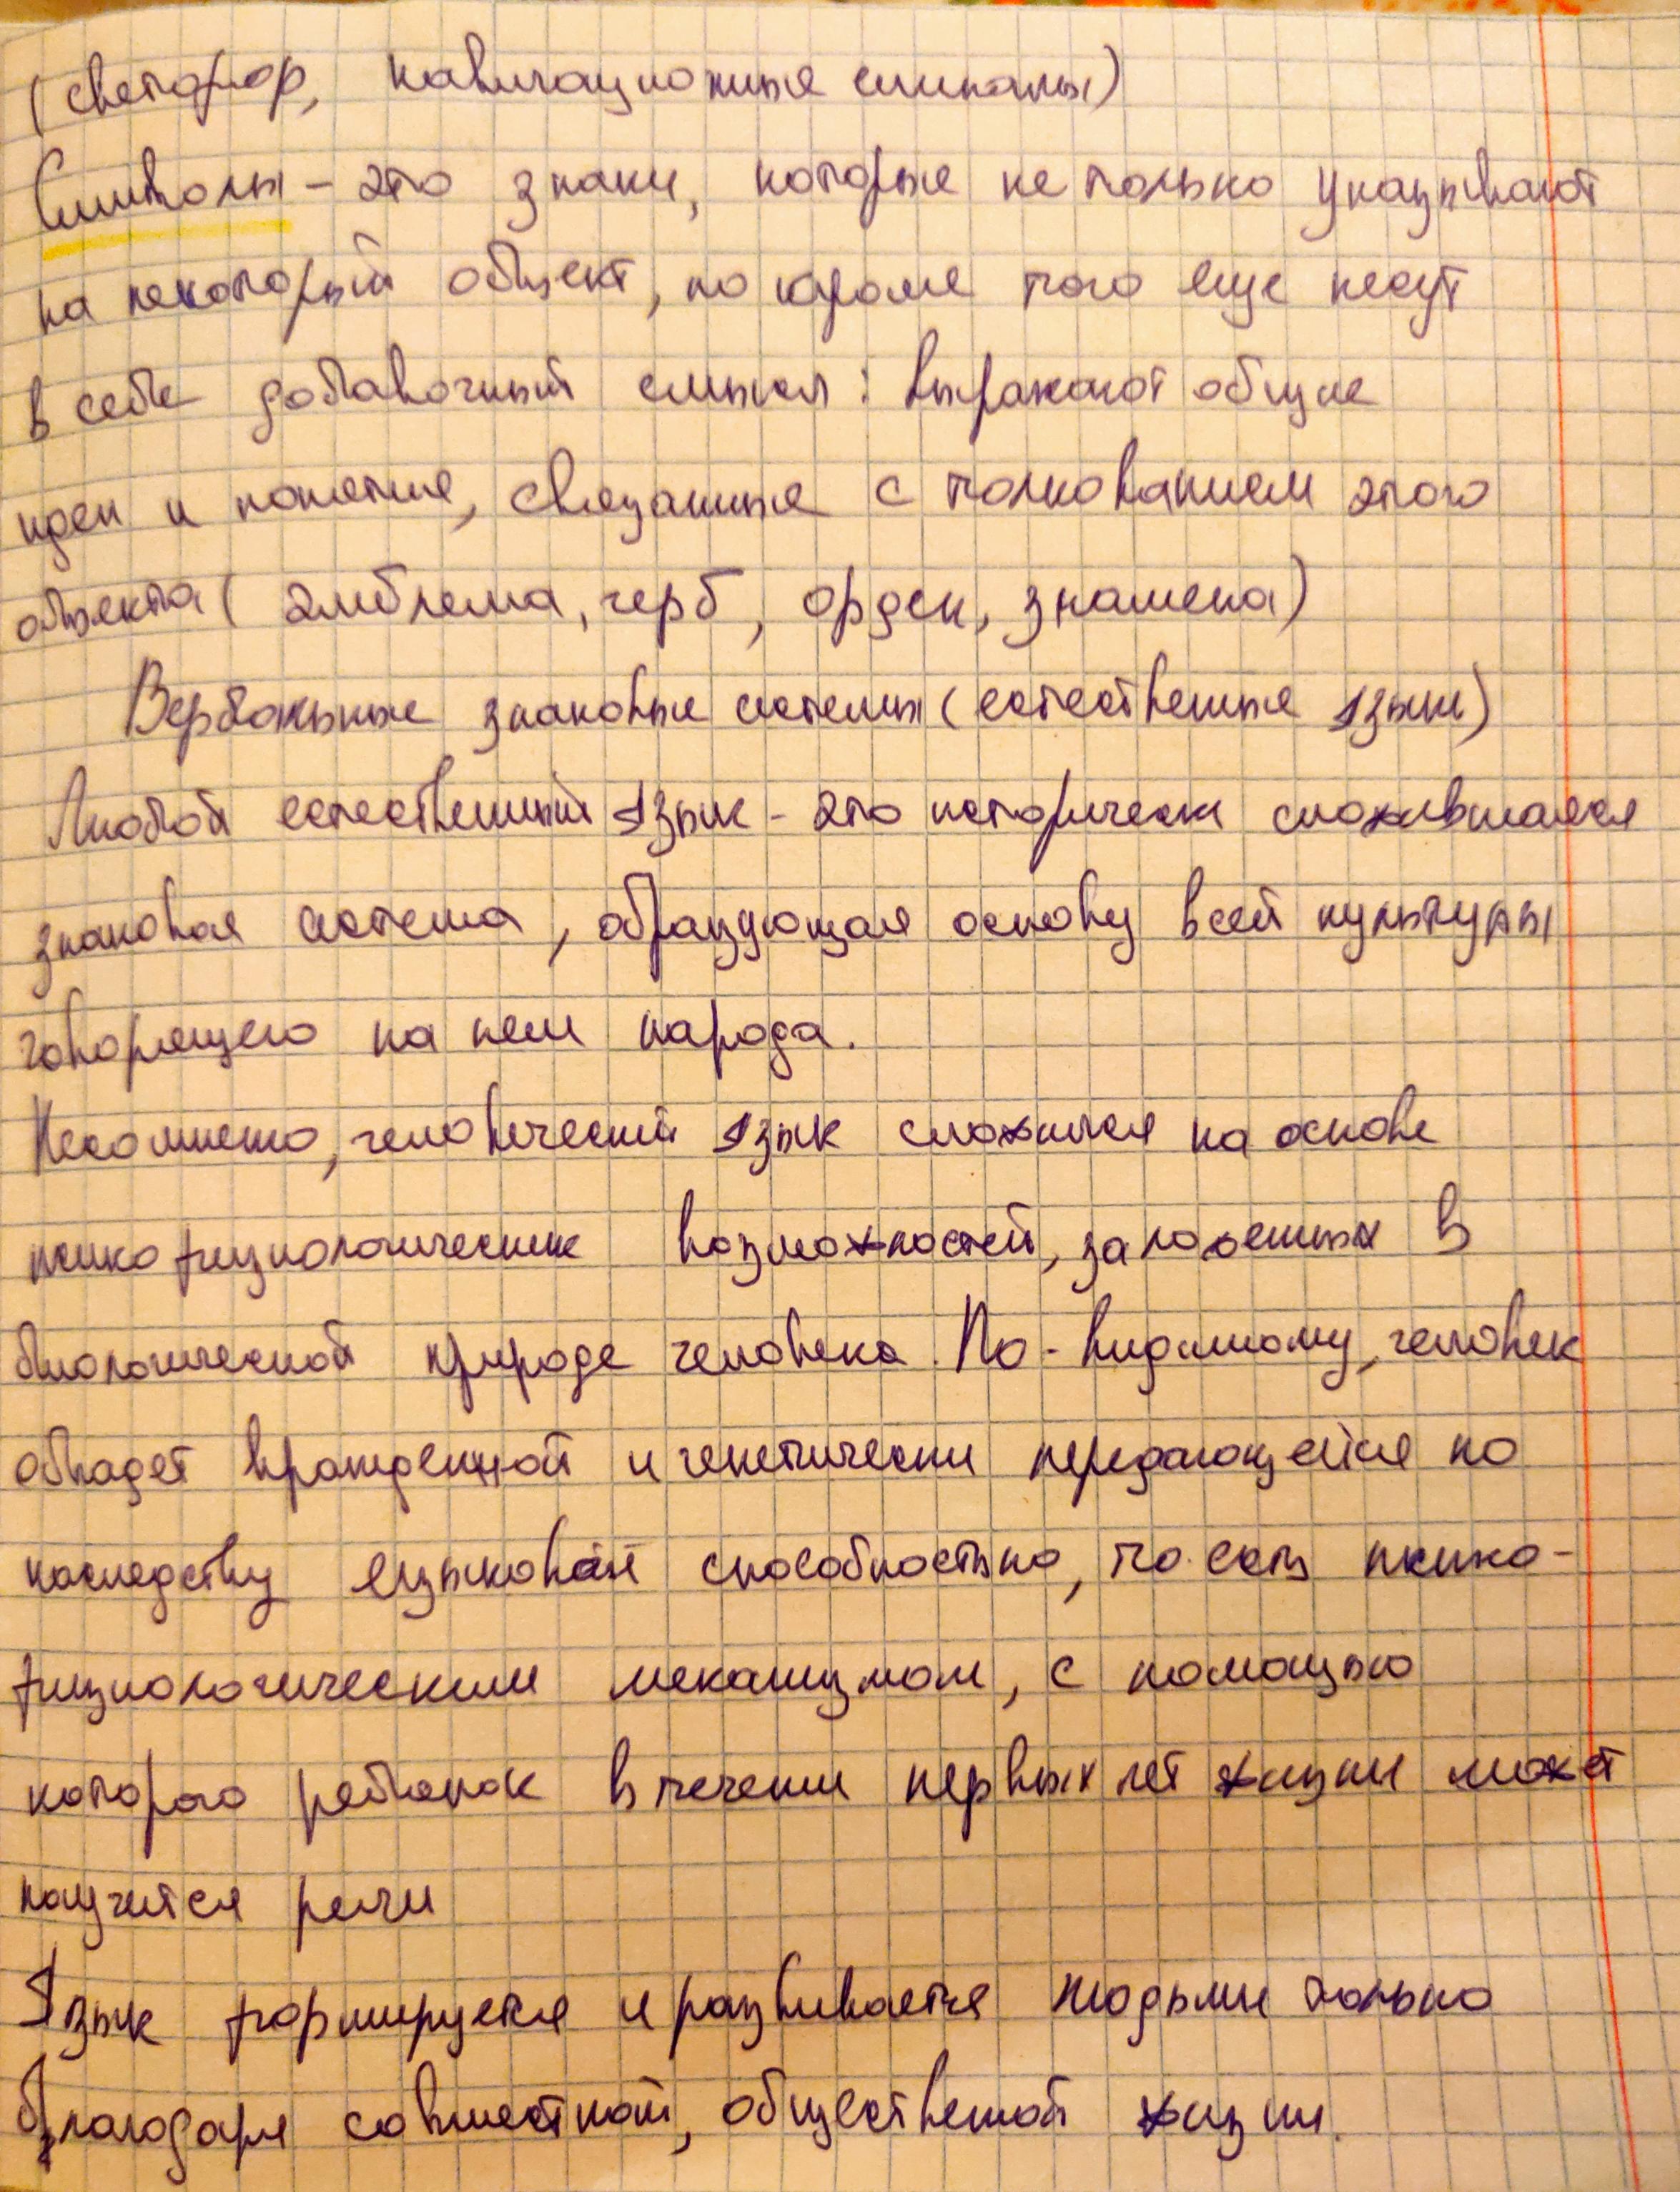 (светофор, навигационные сигналы)
Символы - это знаки, которые не только указывают
на некоторый объект, но кроме того еще несут
в себе добавочный смысл: выражают общие
идеи и понятия, связанные с толкованием этого
объекта (эмблема, герб, орден, знамена)
Вербальные знаковые системы (естественные языки)
Любой естественный язык - это исторически сложившаяся
знаковая система, образующая основу всей культуры
говорящего на нем народа.
Несомненно, человеческий язык сложился на основе
психофизиологических возможностей, заложенных в
биологической природе человека. По-видимому, человек
обладет врожденной и генетически передающейся по
наследству языковой способностью, то есть психо-
физиологическим механизмом, с помощью
которого ребенок в течении первых лет жизни может
научится речи
Язык формируется и развивается людьми только
благодаря совместной, общественной жизни.